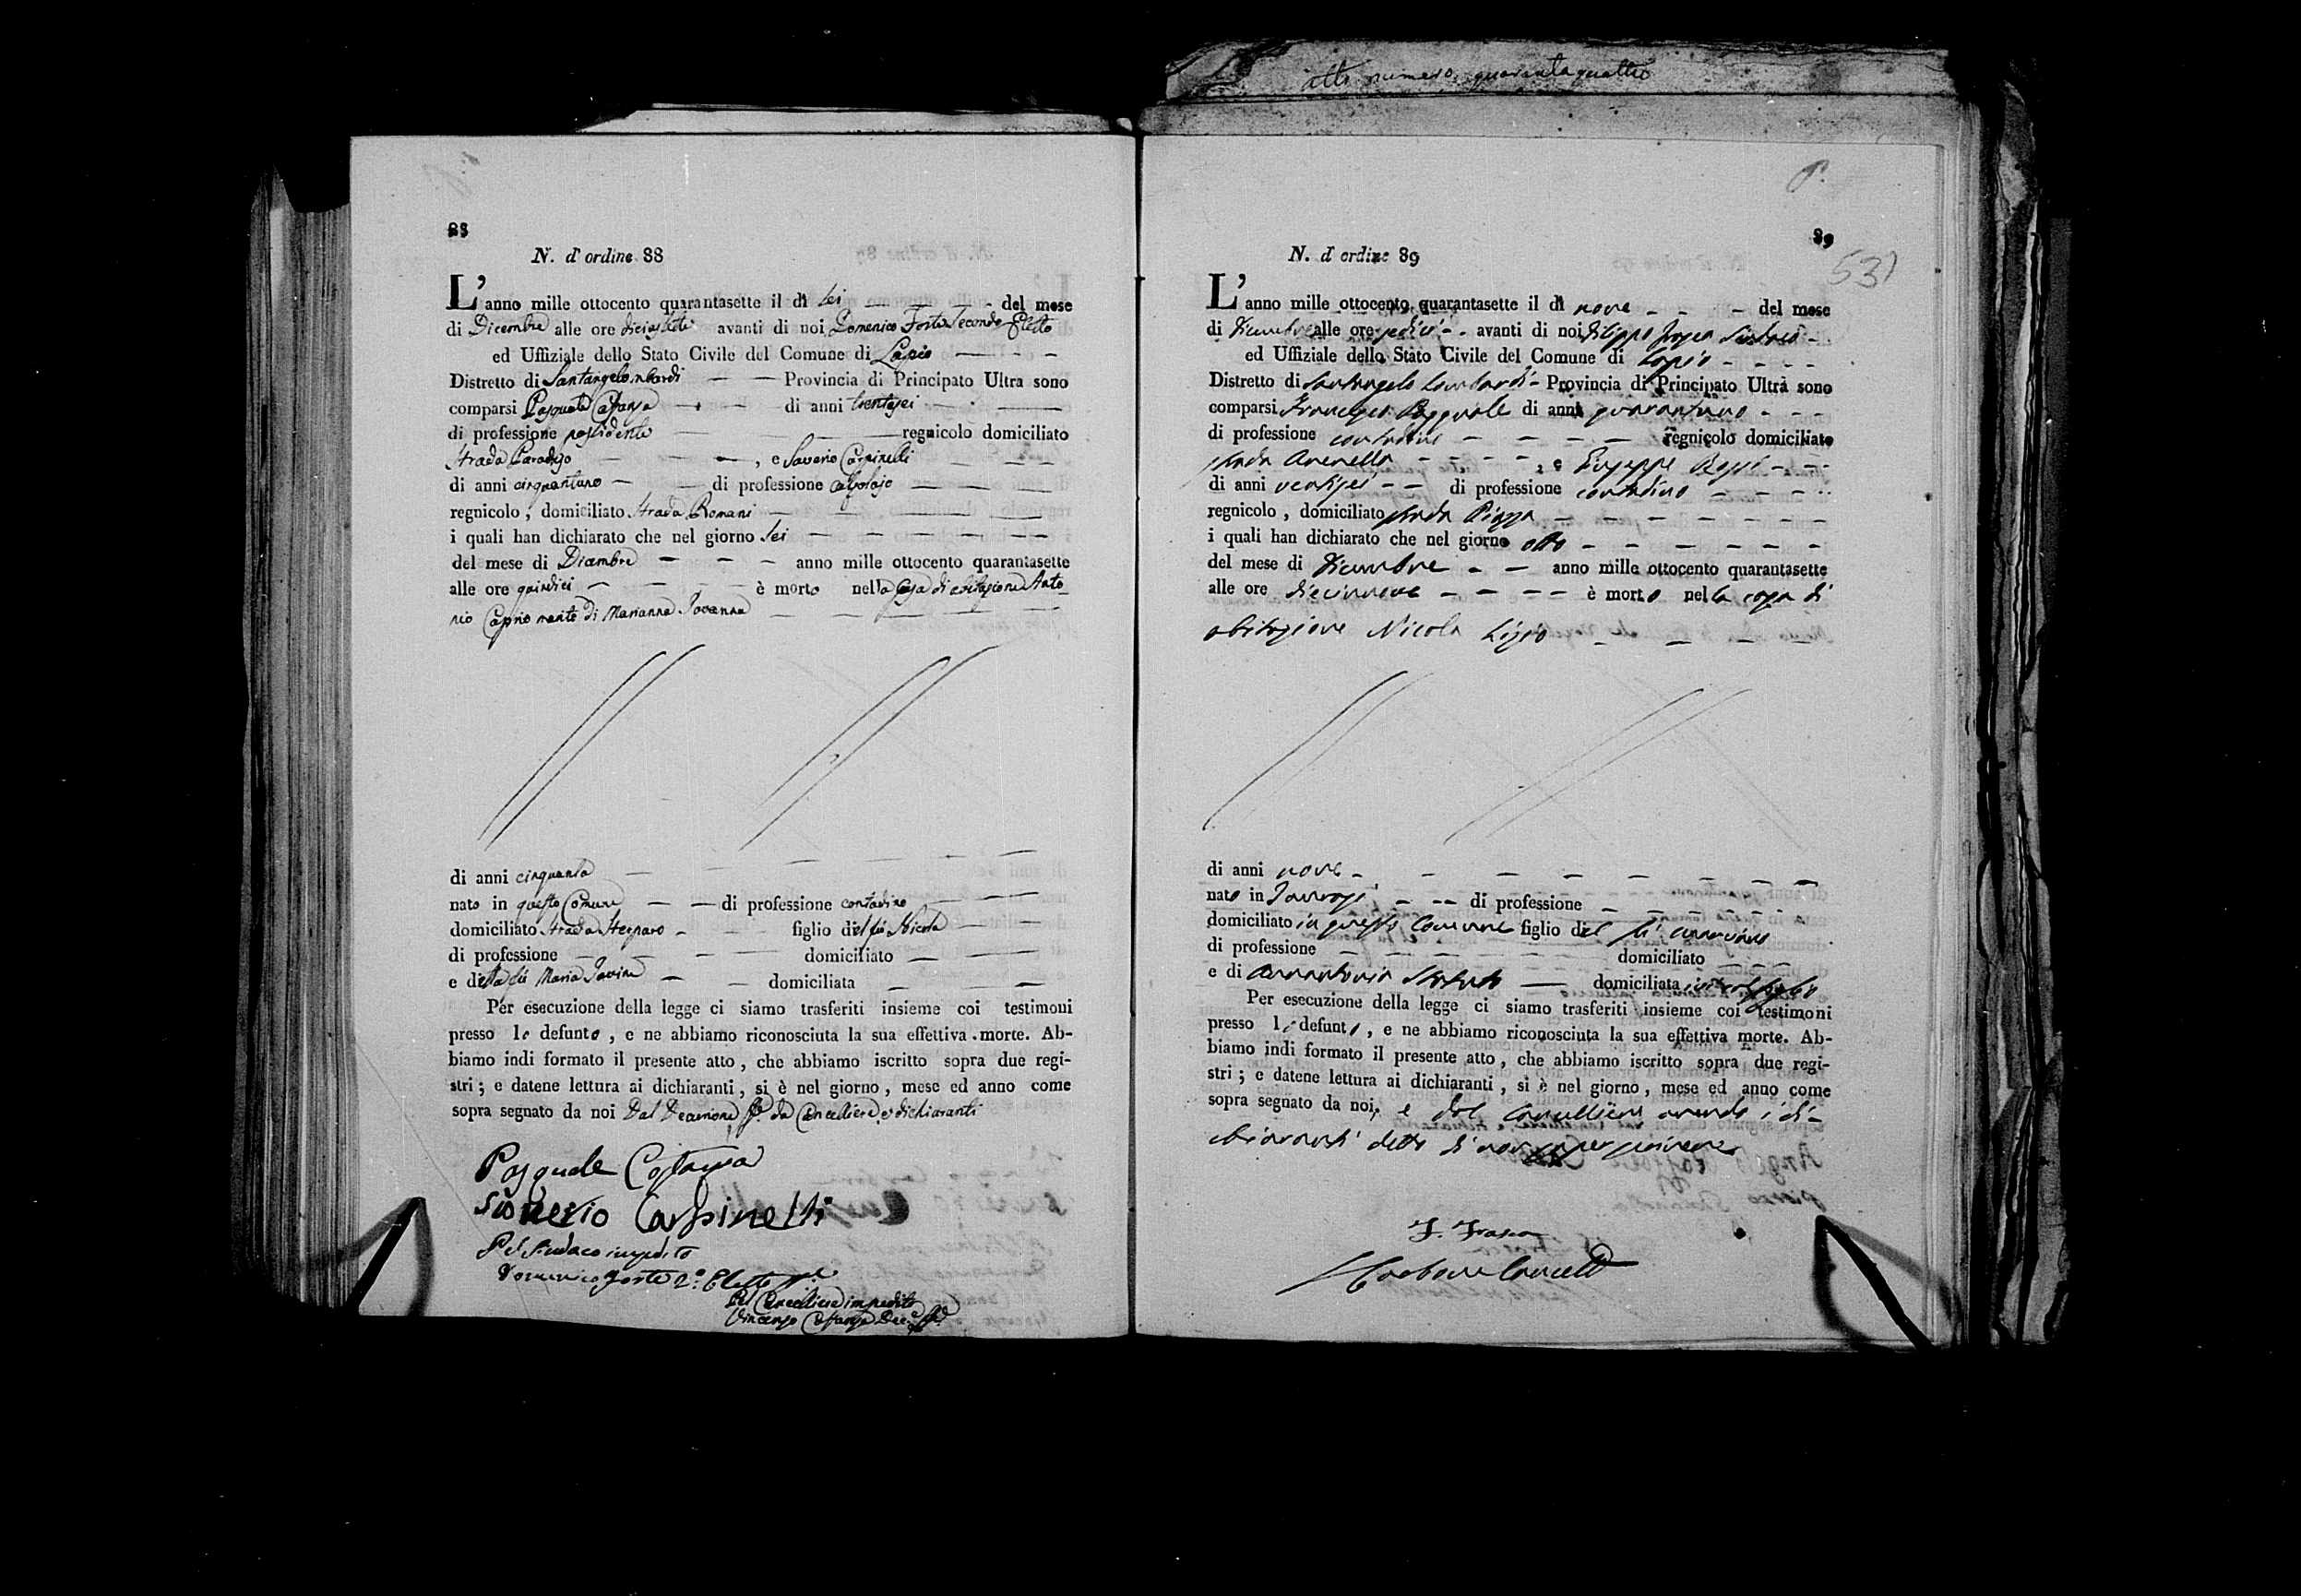 atto numero quarantaquattro
88
N. d'ordine 88
L'anno mille ottocento quarantasette il dì sei del mese
di Dicembre alle ore diciasette avanti di noi Domenico Forte Secondo Eletto
ed Uffiziale dello Stato Civile del Comune di Lapio
Distretto di Santangelolombardi Provincia di Principato Ultra sono
comparsi Pasquale Costanza di anni trentasei
di professione possidente regnicolo domiciliato
Strada Paradiso , e Saverio Carpinelli
di anni cinquantuno di professione calzolajo
regnicolo , domiciliato Strada Romani
i quali han dichiarato che nel giorno sei
del mese di Dicembre anno mille ottocento quarantasette
alle ore quindici è morto nella Casa di abitazione Anto
nio Caprio marito di Marianna Iovanna
di anni cinquanta
nato in questo Comune di professione contadino
domiciliato Strada figlio del fù Nicola
di professione domiciliato
e della fù Maria domiciliata
Per esecuzione della legge ci siamo trasferiti insieme coi testimoni
presso lo defunto , e ne abbiamo riconosciuta la sua effettiva morte. Ab-
biamo indi formato il presente atto , che abbiamo iscritto sopra due regi-
stri ; e datene lettura ai dichiaranti , si è nel giorno , mese ed anno come
sopra segnato da noi Dal Decurione ff. da Cancelliere, e dichiaranti
Pasquale Costanza
Saverio Carpinelli
Pel Sindaco impedito
Domenico Forte 2.º Eletto
Pel Cancelliere impedito
Vincenzo Costanza Dec.e ff.
89
531
N. d'ordine 89
L'anno mille ottocento quarantasette il dì nove del mese
di Dicembre alle ore sedici avanti di noi Filippo Frasca Sindaco
ed Uffiziale dello Stato Civile del Comune di Lapio
Distretto di Santangelo Lombardi Provincia di Principato Ultra sono
comparsi Francesco Pasquale di anni quarantuno
di professione contadino regnicolo domiciliato
strada Arenella , e Giuseppe Rossi
di anni ventisei di professione contadino
regnicolo , domiciliato strada Piazza
i quali han dichiarato che nel giorno otto
del mese di Dicembre anno mille ottocento quarantasette
alle ore diecinove è morto nella casa di
abitazione Nicola
di anni nove
nato in Taurasi di professione
domiciliato in questo Comune figlio del fù
di professione domiciliato
e di domiciliata
Per esecuzione della legge ci siamo trasferiti insieme coi testimoni
presso lo defunto , e ne abbiamo riconosciuta la sua effettiva morte. Ab-
biamo indi formato il presente atto , che abbiamo iscritto sopra due regi-
stri ; e datene lettura ai dichiaranti , si è nel giorno , mese ed anno come
sopra segnato da noi, e dal Cancelliere avendo i di-
chiaranti detto di non saper scrivere
F. Frasca